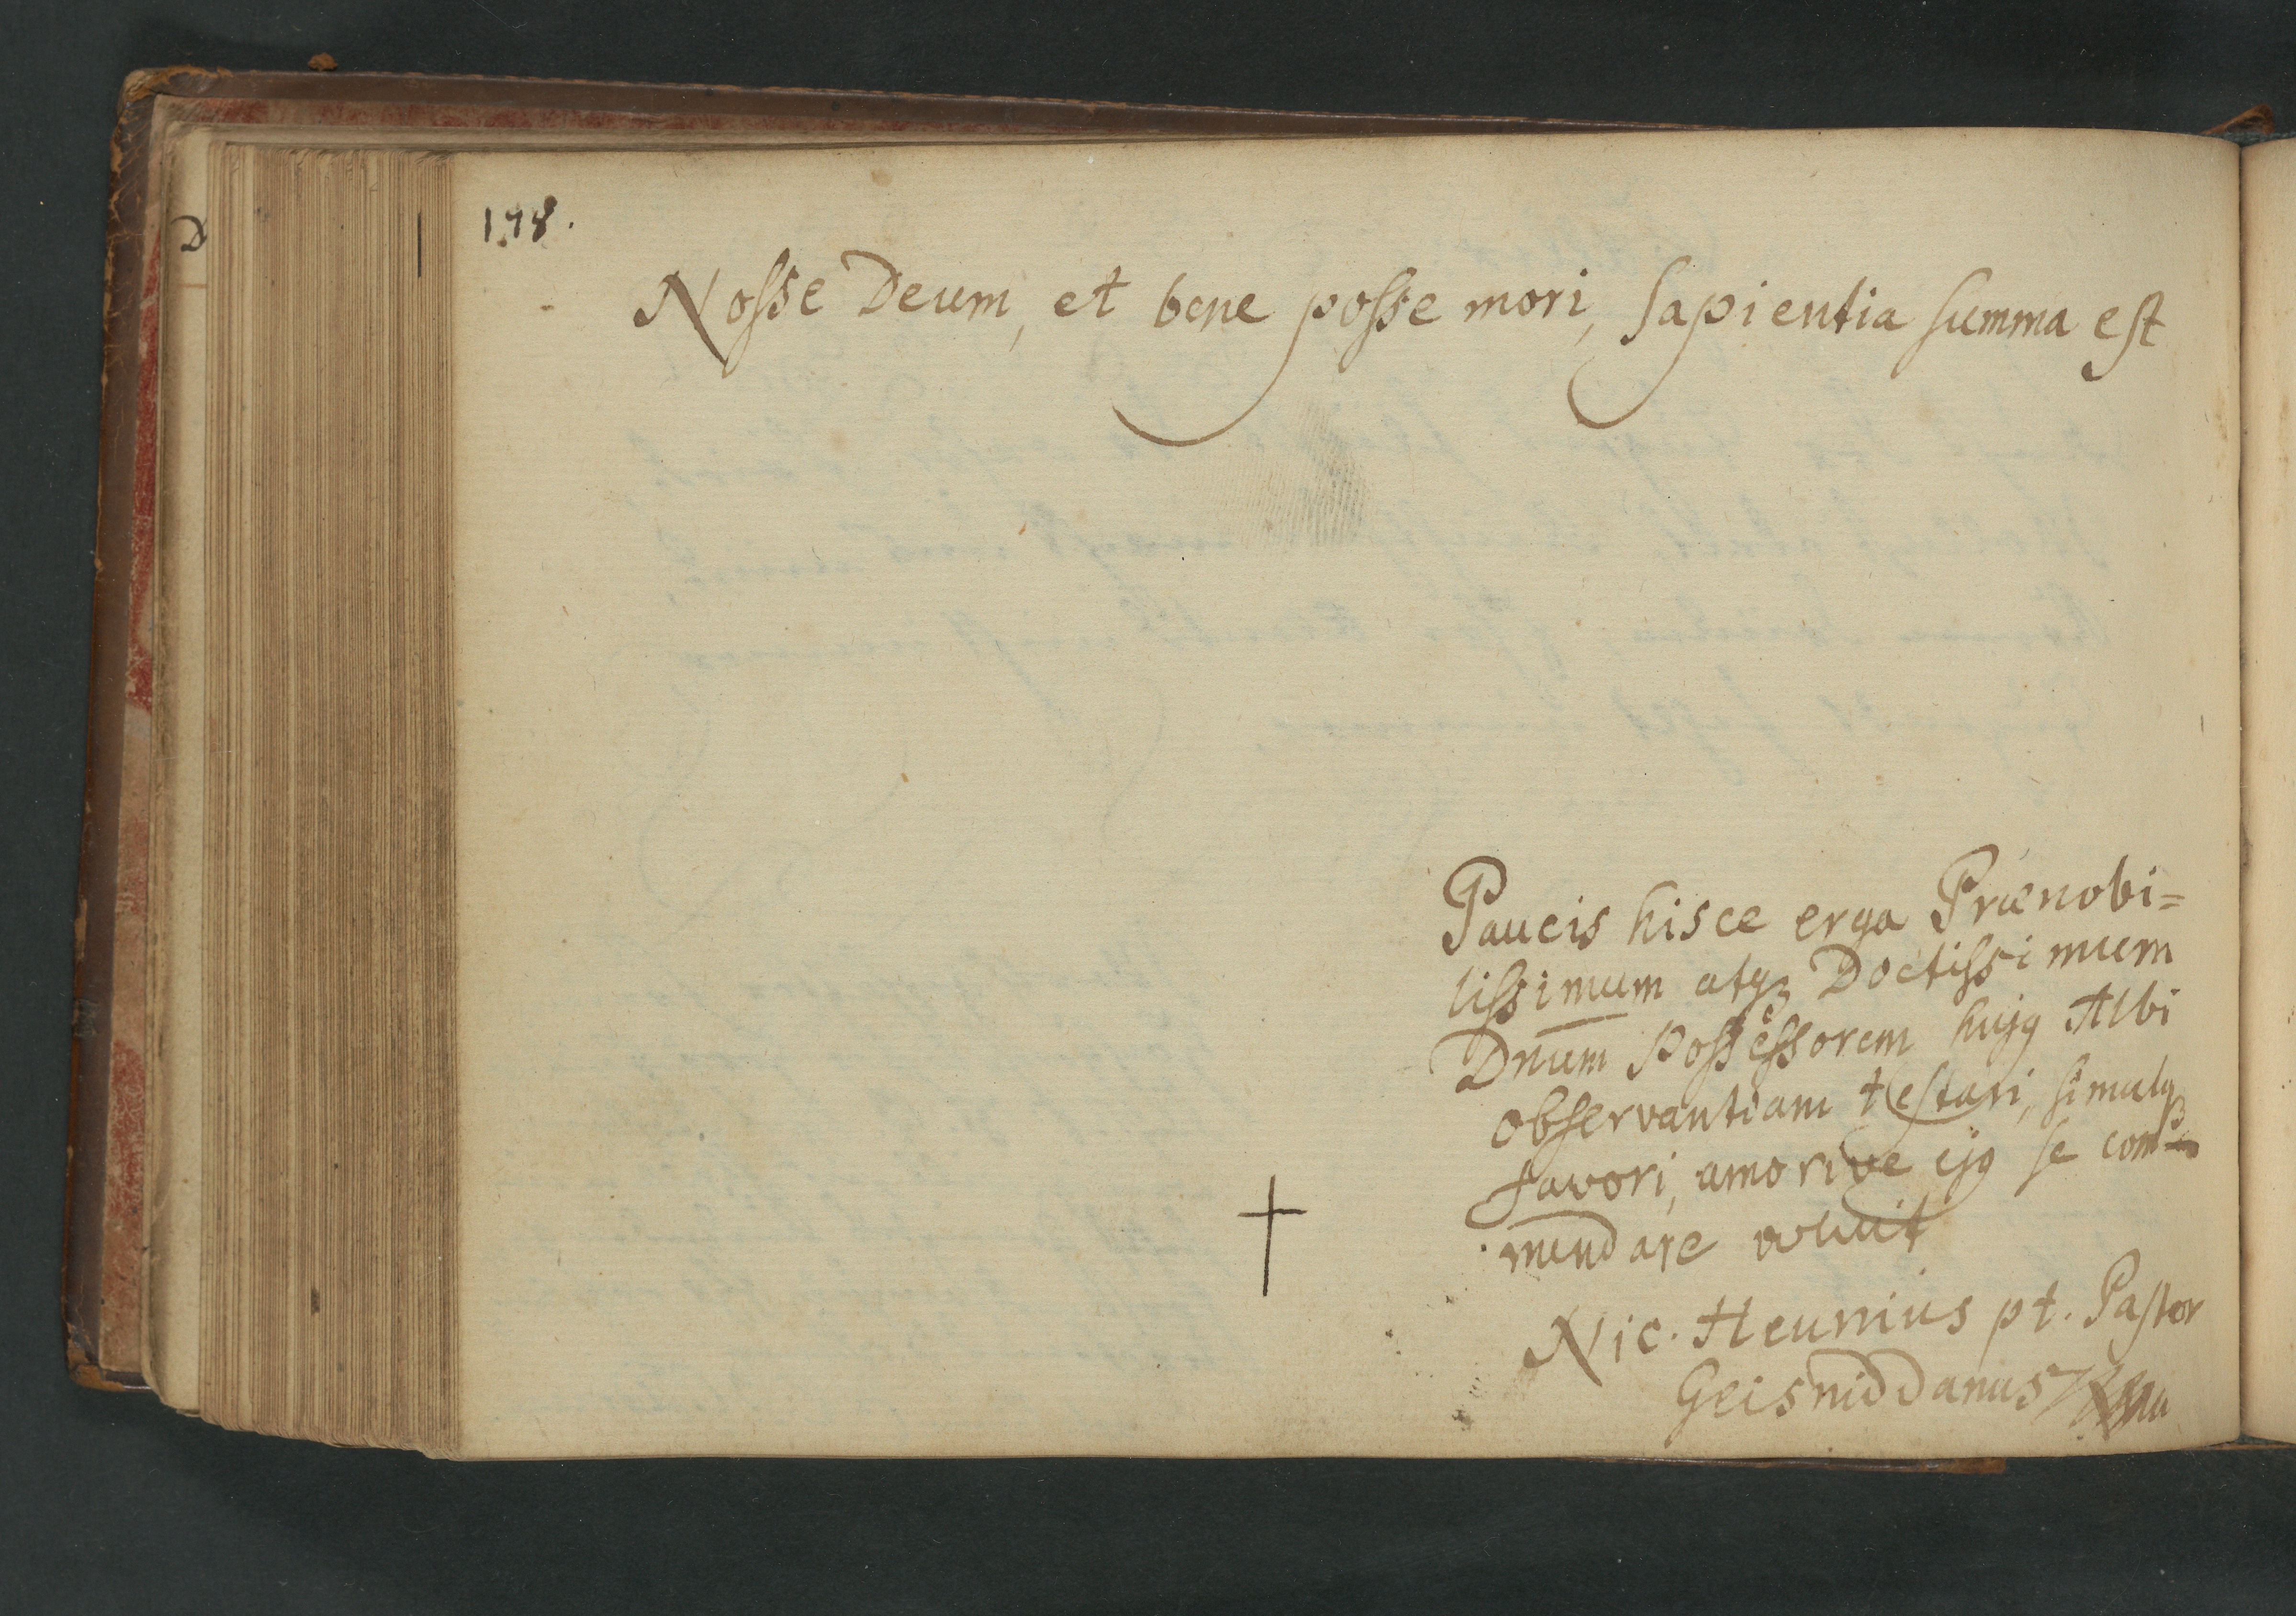 178.
Nosse Deum, et bene posse mori, Sapientia summa est
Paucis hisce erga Prænobi=
lissimum atqz Doctissimum
Dn̄um Possessorem hujq Albi
observantiam testari, simulqz
favori, amorive ejq se com=
mendare voluit
Nic. Heunius pt. Pastor
Geisniddanus
D